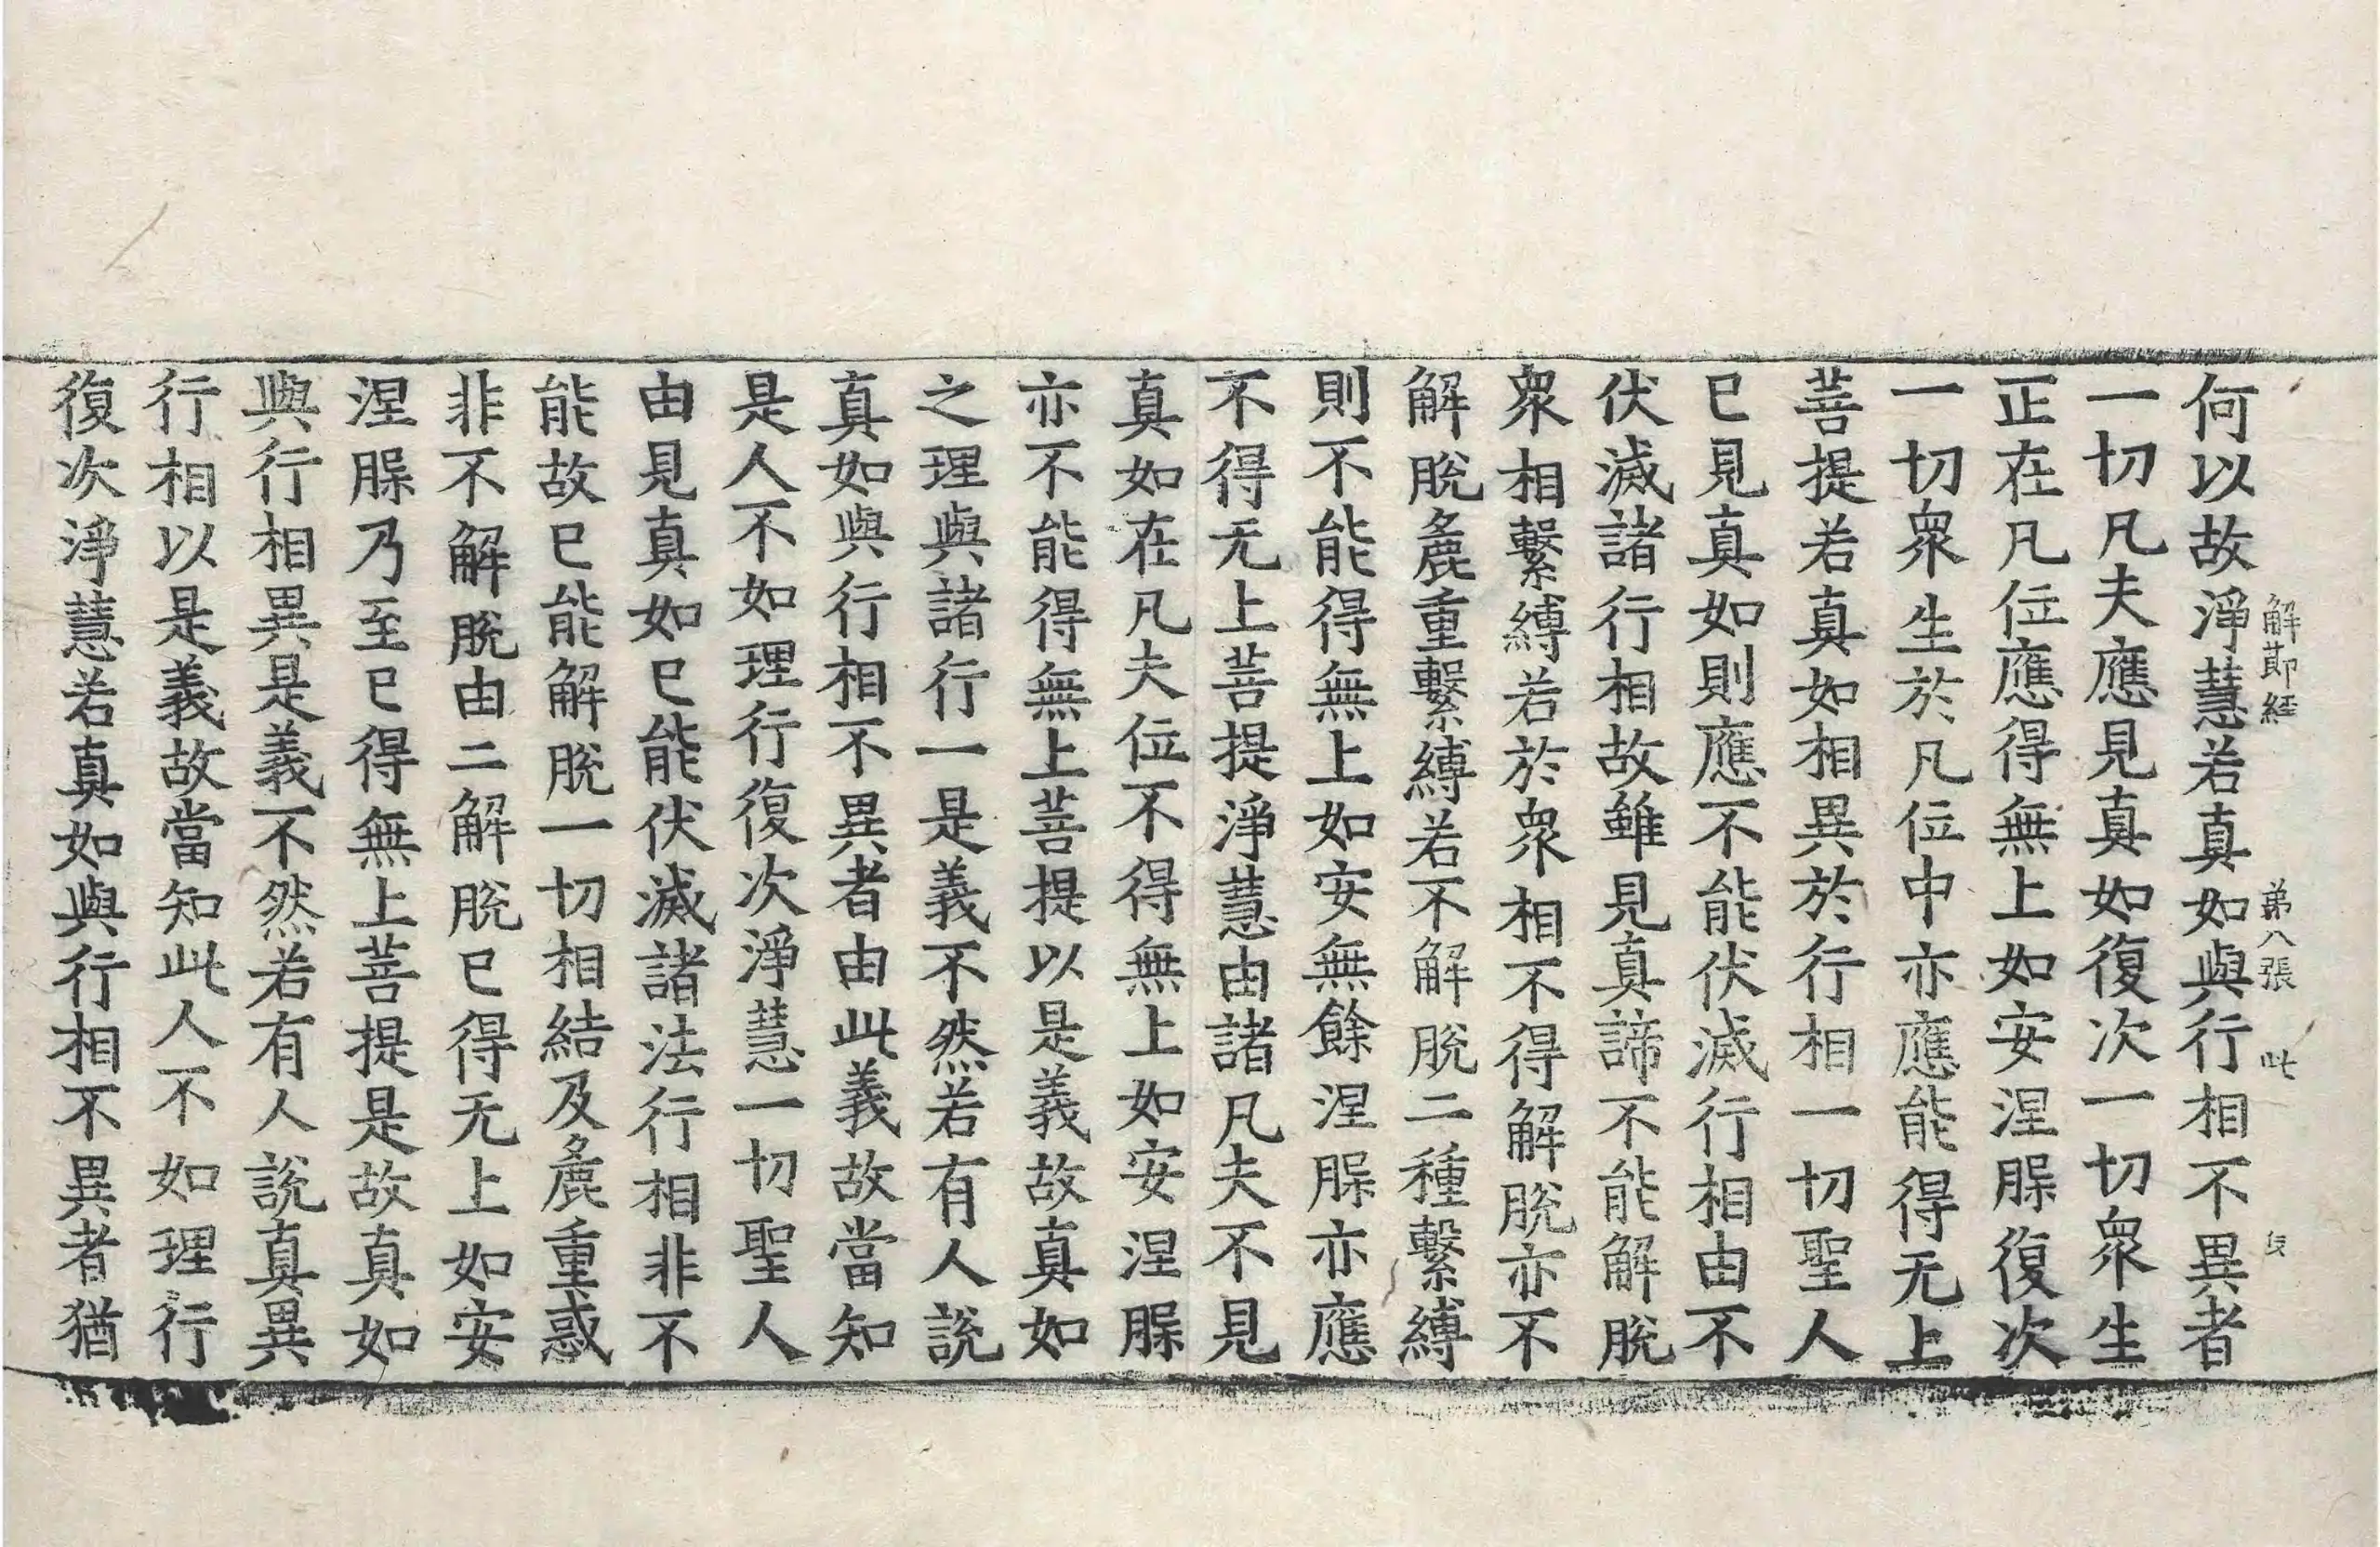 解節經 第八張 此
何以故淨慧若真如與行相不異者
一切凡夫應見真如復次一切衆生
正在凡位應得無上如安涅槃復次
一切衆生於凡位中亦應能得无上
菩提若真如相異於行相一切聖人
已見真如則應不能伏滅行相由不
伏滅諸行相故雖見真諦不能解脫
衆相繫縛若於衆相不得解脫亦不
解脫麁重繫縛若不解脫二種繫縛
則不能得無上如安無餘涅槃亦應
不得无上菩提淨慧由諸凡夫不見
真如在凡夫位不得無上如安涅槃
亦不能得無上菩提以是義故真如
之理與諸行一是義不然若有人說
真如與行相不異者由此義故當知
是人不如理行復次淨慧一切聖人
由見真如已能伏滅諸法行相非不
能故已能解脫一切相結及麁重惑
非不解脫由二解脫已得无上如安
涅槃乃至已得無上菩提是故真如
與行相異是義不然若有人說真異
行相以是義故當知此人不如理行
復次淨慧若真如與行相不異者猶